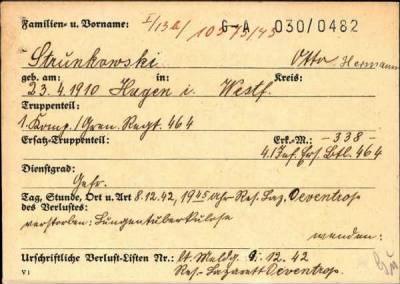 Familien- u. Vorname: I/13a/ 10373/43 G-A 030/0482
Strunkowski Otto Hermann
geb. am: in: Kreis:
23.4.1910 Hagen i. Westf.
Truppenteil:
1. Komp./Gren. Regt. 464
Ersatz-Truppenteil: Erk.-M.: -338-
4. Inf. Ers. Btl. 464
Dienstgrad:
Gefr.
Tag, Stunde, Ort u. Art 8.12.42, 19 45 Uhr Res. Laz. Oeventrop
des Verlustes:
verstorben: Lungentuberkulose
wenden:
Urschriftliche Verlust-Listen Nr.: lt. Meldg. 9.12.42
V 1 Res.-Lazarett Oeventrop.